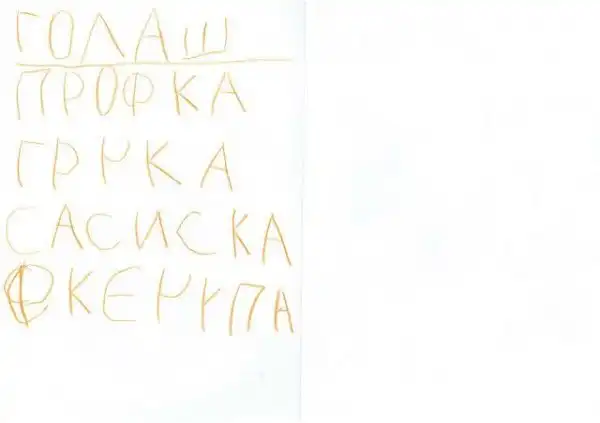 ГОЛАШ
ПРОФКА
ГРЧКА
САСИСКА
КЕЧУПА